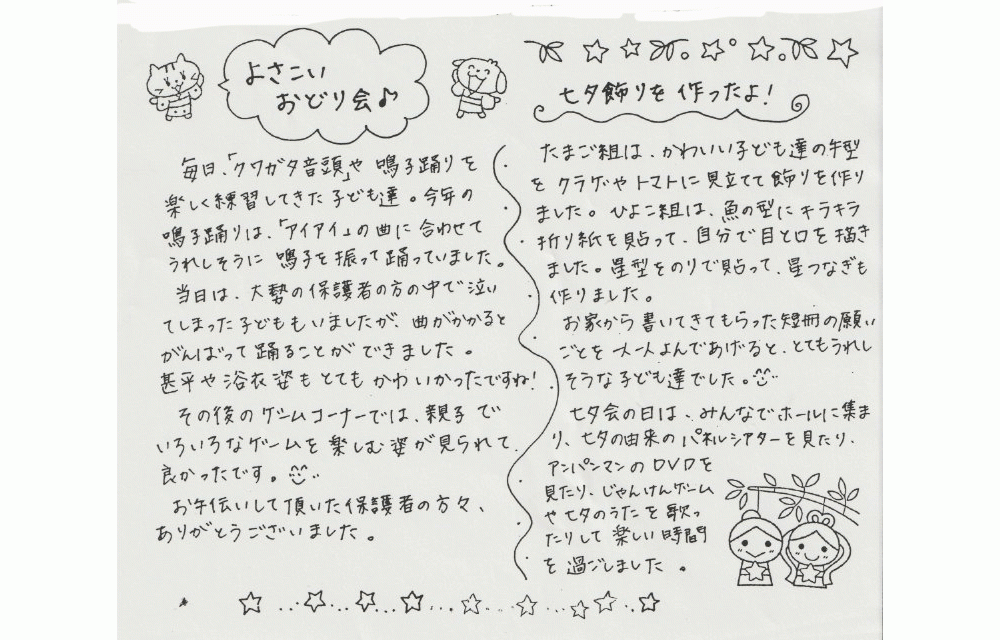 よさこい
おどり会♪
毎日、「クワガタ音頭」や 鳴子踊りを
楽しく練習してきた子ども達。今年の
鳴子踊りは、「アイアイ」の曲に合わせて
うれしそうに 鳴子を振って踊っていました。
当日は、大勢の保護者の方の中で泣い
てしまった子どももいましたが、曲がかかると
がんばって踊ることができました。
甚平や浴衣姿もとてもかわいかったですね!
その後のゲームコーナーでは、親子で
いろいろなゲームを楽しむ姿が見られて
良かったです。
お手伝いして頂いた保護者の方々、
ありがとうございました。
七夕飾りを作ったよ!
たまご組は、かわいい子ども達の手型
をクラゲやトマトに見立てて飾りを作り
ました。ひよこ組は、魚の型にキラキラ
折り紙を貼って、自分で目と口を描き
ました。星型をのりで貼って、星つなぎも
作りました。
お家から書いてきてもらった短冊の願い
ごとを一人一人よんであげると、とてもうれし
そうな子ども達でした。
七夕会の日は、みんなでホールに集ま
り、七夕の由来のパネルシアターを見たり、
アンパンマンのDVDを
見たり、じゃんけんゲーム
や七夕のうたを歌っ
たりして楽しい時間
を過ごしました。